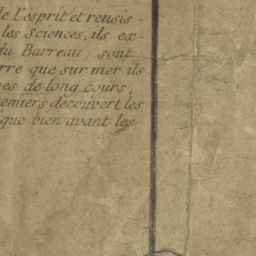 de l'esprit et reusis-
les Sciences, ils ex-
du Barreau sont
rre que sur mer ils
es de long cours,
remiers decouvert les
que bien avant les